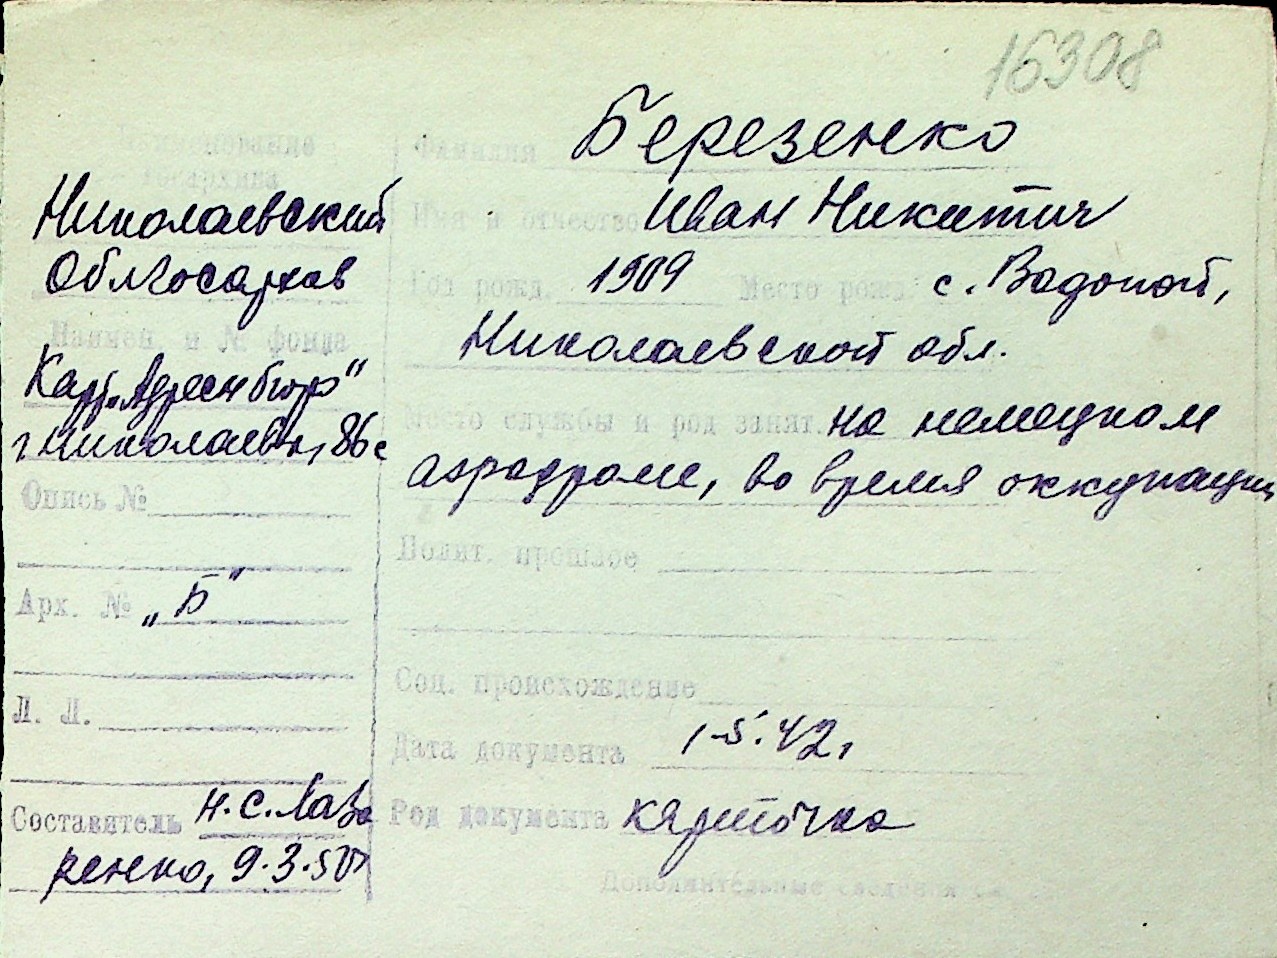 16308
Наименование
Госархива
Николаевский
Облгосархив
Наимен. и № фонда
Карт. „Адресн бюро"
г. Николаева, 86с
Опись №
Арх. № „Б"
Л. Л.
Составитель Н.С. Лаза
ренко, 9.3.50
Фамилия Березенко
Имя и отчество Иван Никитич
Год рожд. 1909 Место рожд. с. Водопой,
Николаевской обл.
Место службы и род занят. на немецком
аэродроме, во время оккупации
Полит. прошлое
Соц. происхождение
Дата документа 1-5.42,
Род документа карточка
Дополнительные сведения